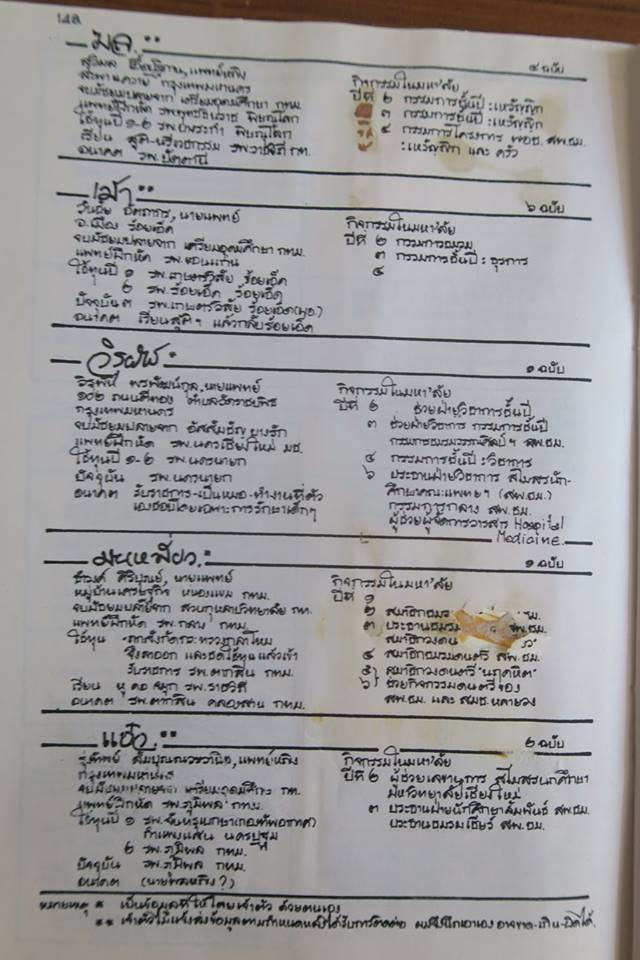 148
มล. **
๔ ฉบับ
สุวิมล แพทย์หญิง
สะพานควาย กรุงเทพมหานคร
จบมัธยมปลายจาก เตรียมอุดมศึกษา กทม.
แพทย์ฝึกหัด รพ.พุทธชินราช พิษณุโลก
ใช้ทุนปี ๑-๒ รพ. พิษณุโลก
เรียน สูติ-นรีเวชกรรม รพ.ราชวิถี กท.
อนาคต รพ.ปัตตานี
กิจกรรมในมหา'ลัย
ปีที่ ๒ กรรมการชั้นปี : เหรัญญิก
๓ กรรมการชั้นปี : เหรัญญิก
๔ กรรมการโครงการ พอช. สพ.ชม.
: เหรัญญิก และ ครัว
เม้า **
๖ ฉบับ
วันชัย นายแพทย์
อ.เมือง ร้อยเอ็ด
จบมัธยมปลายจาก เตรียมอุดมศึกษา กทม.
แพทย์ฝึกหัด รพ.ขอนแก่น
ใช้ทุนปี ๑ รพ.เกษตรวิสัย ร้อยเอ็ด
๒ รพ.ร้อยเอ็ด ร้อยเอ็ด
ปัจจุบัน ๓ รพ.เกษตรวิสัย ร้อยเอ็ด(ผอ.)
อนาคต เรียนสูติฯ แล้วกลับร้อยเอ็ด
กิจกรรมในมหา'ลัย
ปีที่ ๒ กรรมการชมรม
๓ กรรมการชั้นปี : ธุรการ
๔
วิรุฬห์ *
๑ ฉบับ
วิรุฬห์ พรพัฒน์กุล, นายแพทย์
๑๐๒ ถนนตีทอง ตำบลวัดราชบพิธ
กรุงเทพมหานคร
จบมัธยมปลายจาก อัสสัมชัญ บางรัก
แพทย์ฝึกหัด รพ.นครเชียงใหม่ มช.
ใช้ทุนปี ๑-๒ รพ.นครนายก
ปัจจุบัน รพ.นครนายก
อนาคต รับราชการ-เป็นหมอ-ทำงานที่ตัว
เองชอบโดยเฉพาะการรักษาเด็กๆ
กิจกรรมในมหา'ลัย
ปีที่ ๒ ช่วยฝ่ายวิชาการชั้นปี
๓ ช่วยฝ่ายวิชาการ กรรมการชั้นปี
กรรมการชมรมวรรณศิลป์ฯ สพ.ชม.
๔ กรรมการชั้นปี : วิชาการ
๖ ประธานฝ่ายวิชาการ สโมสรนัก-
ศึกษาคณะแพทยฯ (สพ.ชม.)
กรรมการกลาง สพ.ชม.
ผู้ช่วยผู้จัดการวารสาร Hospital
Medicine.
มนเหมี่ยว. *
๑ ฉบับ
ธำรงค์ ศิริบุญย์, นายแพทย์
หมู่บ้านเศรษฐกิจ หนองแขม กทม.
จบมัธยมปลายจาก สวนกุหลาบวิทยาลัย กท.
แพทย์ฝึกหัด รพ.กลาง กทม.
ใช้ทุน ตกลังกัดกระทรวงกลาโหม
จึงลาออก และชดใช้ทุนแล้วเข้า
รับราชการ รพ.ตากสิน กทม.
เรียน หู คอ จมูก รพ.ราชวิถี
อนาคต รพ.ตากสิน คลองสาน กทม.
กิจกรรมในมหา'ลัย
ปีที่ ๑
๒ สมาชิกชมร ม.
๓ ประธานชมรม สพ.ชม.
สมาชิกวงดน
๔ สมาชิกชมรมดนตรี สพ.ชม.
๕ สมาชิกวงดนตรี "นฤคหิต"
๖ ช่วยกิจกรรมดนตรีของ
สพ.ชม. และ สมช.หลายวง
แอ๋ว. **
๒ ฉบับ
รุ่งทิพย์ สมบุญณวรวานิช, แพทย์หญิง
กรุงเทพมหานคร
จบมัธยมปลายจาก เตรียมอุดมศึกษา กท.
แพทย์ฝึกหัด รพ.ภูมิพล กทม.
ใช้ทุนปี ๑ รพ.จันทรุเบกษา(กองทัพอากาศ)
กำแพงแสน นครปฐม
๒ รพ.ภูมิพล กทม.
ปัจจุบัน รพ.ภูมิพล กทม.
อนาคต (นายพลหญิง?)
กิจกรรมในมหา'ลัย
ปีที่ ๒ ผู้ช่วยเลขานุการ สโมสรนักศึกษา
มหาวิทยาลัยเชียงใหม่
๓ ประธานฝ่ายนักศึกษาสัมพันธ์ สพ.ชม.
ประธานชมรมเชียร์ สพ.ชม.
หมายเหตุ * เป็นข้อมูลที่ให้โดยเจ้าตัว ด้วยตนเอง
** เจ้าตัวไม่แจ้งส่งข้อมูลตามกำหนดหลังได้รับการติดต่อ ผมจึงนึกเอาเอง อาจขาด-เกิน-ผิดได้.